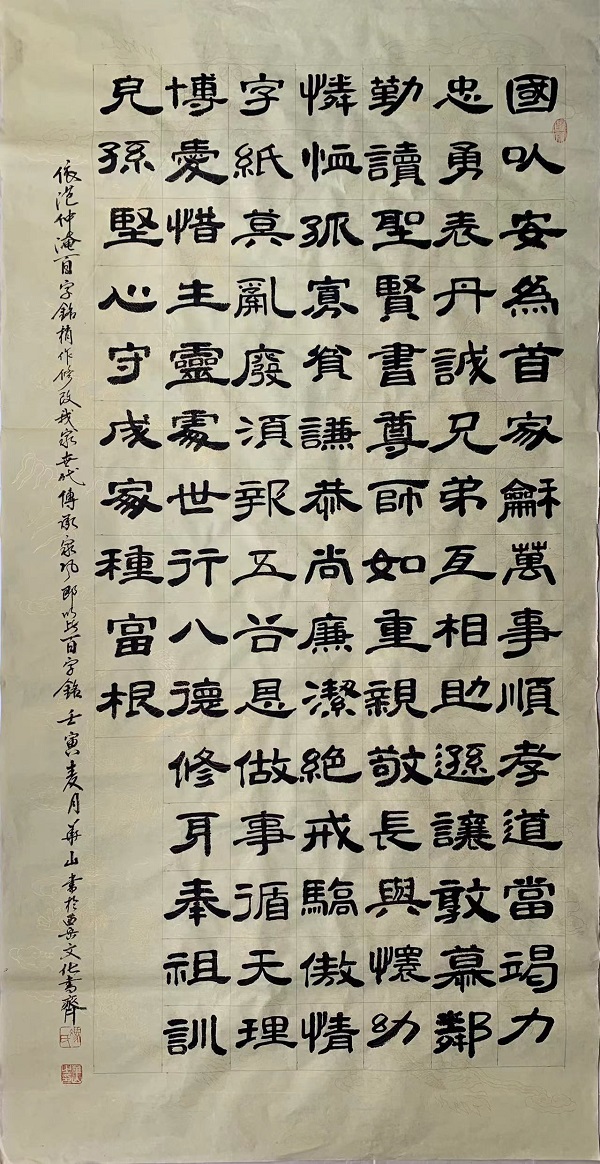 國以安為首家龢萬事順孝道當竭力
忠勇表丹誠兄弟互相助遜讓敦慕鄰
勤讀聖賢書尊師如重親敬長與懷幼
憐恤孤寡貧謙恭尚廉潔絕戒驕傲情
字紙莫亂廢須報五谷恩做事循天理
博愛惜生靈處世行八德修身奉祖訓
兒孫堅心守成家種富根
依范仲淹百字銘稍作修改我家世代傳承家風即以此百字銘 壬寅夏月華山書於文化書齊